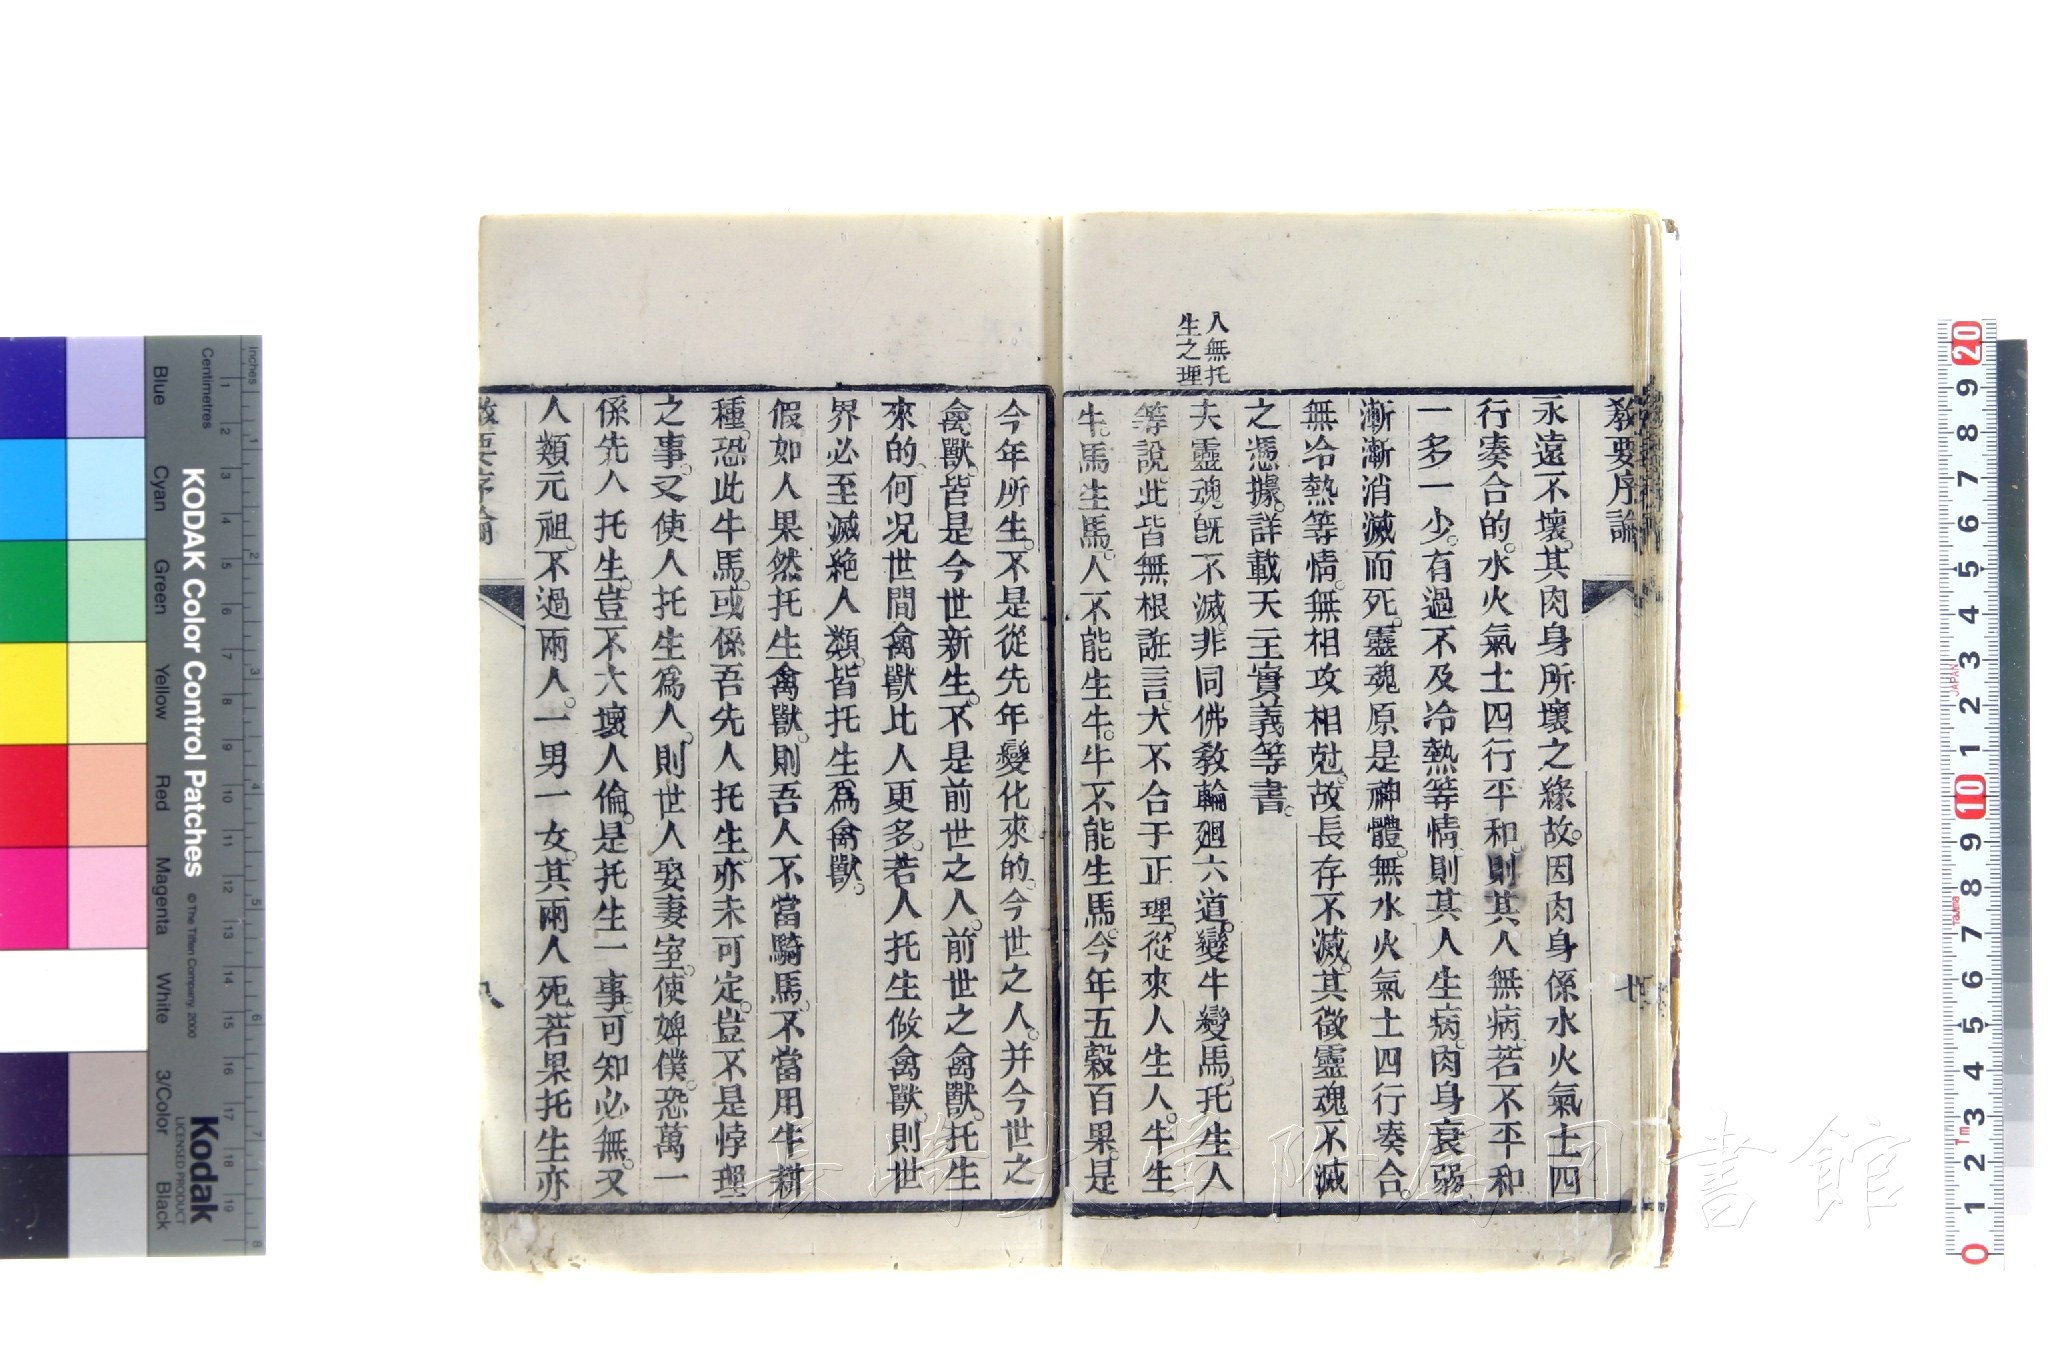 教要序論
永遠不壞。其肉身所壞之緣故。因肉身係水火氣土四
行凑合的。水火氣土四行平和。則其人無病。若不平和
一多一少。有過不及冷熱等情。則其人生病。肉身衰弱。
漸漸消滅而死。靈魂原是神體。無水火氣土四行凑合。
無冷熱等情。無相攻相尅。故長存不滅。其徵靈魂不滅
之憑據。詳載天主實義等書。
人無托
生之理
夫靈魂。旣不滅。非同佛教輪廻六道。變牛變馬。托生人
等說。此皆無根誑言。大不合于正理。從來人生人。牛生
牛。馬生馬。人不能生牛。牛不能生馬。今年五穀百果。是
今年所生。不是從先年變化來的。今世之人。并今世之
禽獸。皆是今世新生。不是前世之人。前世之禽獸。托生
來的。何況世間禽獸比人更多。若人托生做禽獸。則世
界必至滅絶人類。皆托生爲禽獸。
假如人果然托生禽獸。則吾人不當騎馬。不當用牛耕
種。恐此牛馬。或係吾先人托生。亦未可定。豈不是悖理
之事。又使人托生爲人。則世人娶妻室。使婢僕。恐萬一
係先人托生。豈不大壞人倫。是托生一事。可知必無。又
人類元祖。不過兩人。一男一女。其兩人死。若果托生亦
教要序論
KODAK Color Control Patches
© The Tiffen Company, 2000
Kodak
LICENSED PRODUCT
Inches
Centimetres
Blue
Cyan
Green
Yellow
Red
Magenta
White
3/Color
Black
長崎大学附属図書館